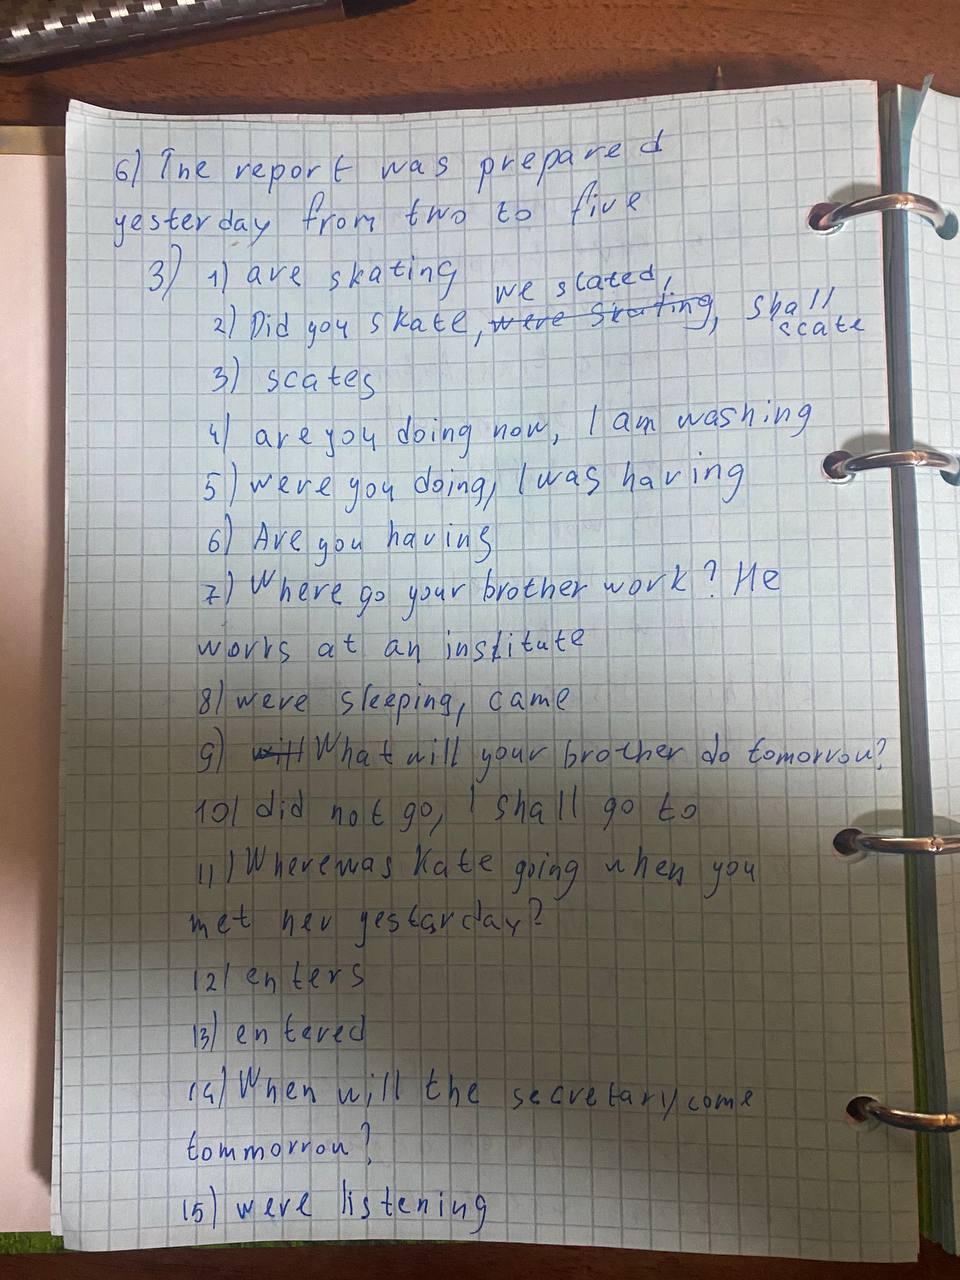 6) The report was prepared
yesterday from two to five
3) 1) are skating
we scated,
2) Did you skate, were skating, shall
scate
3) scates
4) are you doing now, I am washing
5) were you doing, I was having
6) Are you having
7) Where go your brother work? He
works at an institute
8) were sleeping, came
9) will What will your brother do tomorrow?
10) did not go, I shall go to
11) Where was Kate going when you
met her yestarday?
12) enters
13) entered
14) When will the secretary come
tommorrow?
15) were listening